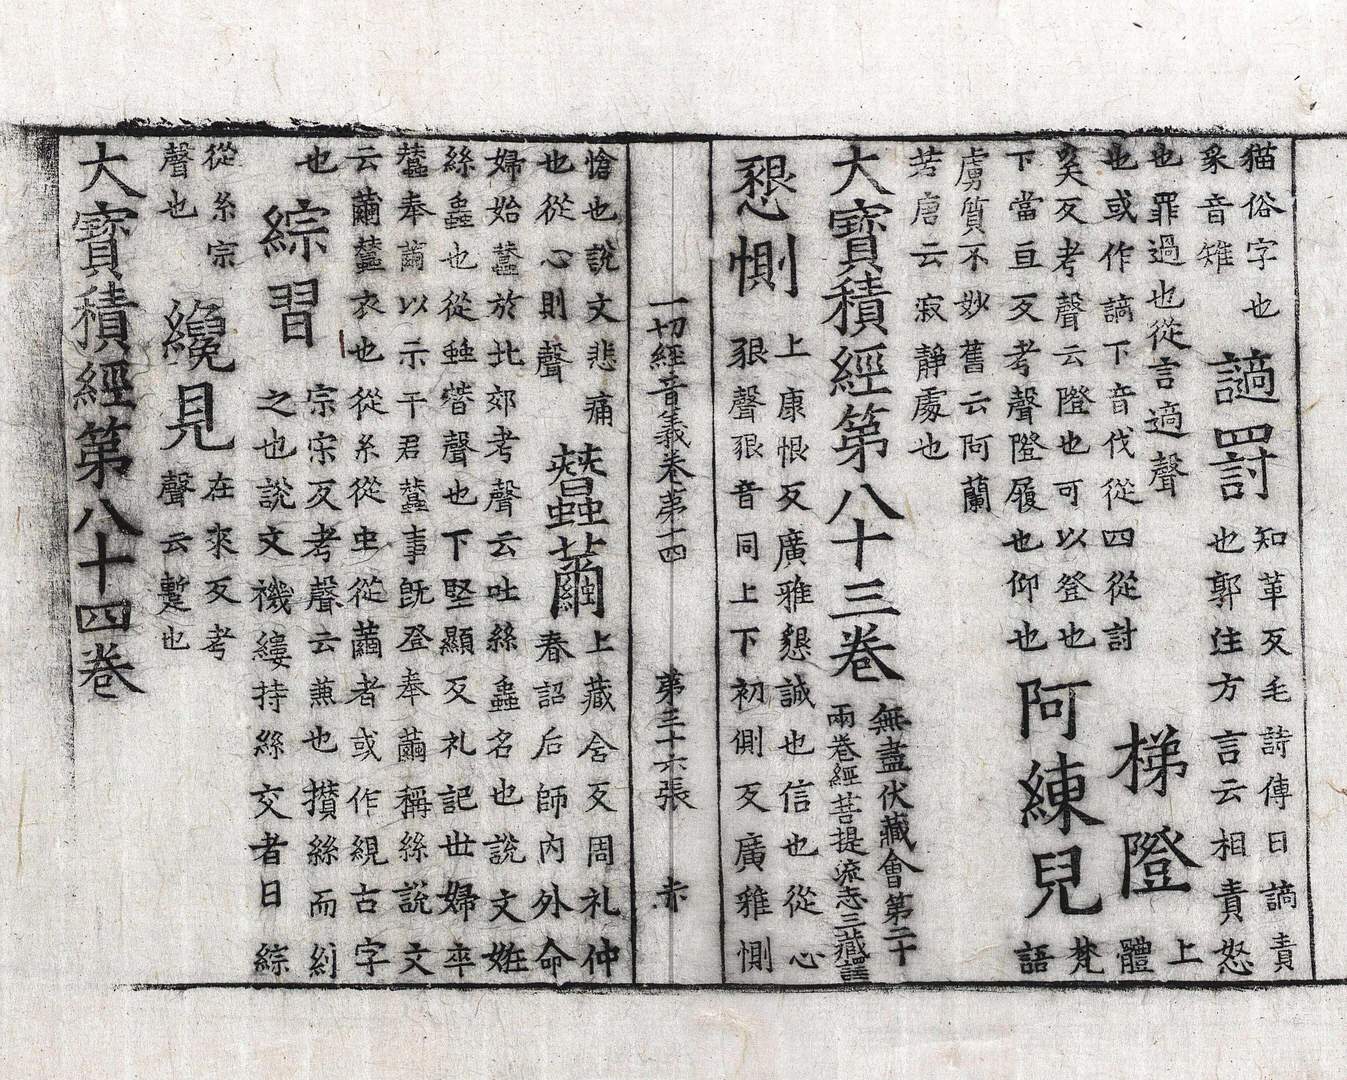 猫俗字也
豸音雉
謫罰
知革反毛詩傳曰謫責
也郭注方言云相責怒
也罪過也從言適聲
也或作謫下音伐從四從討
梯隥
上
體
矣反考聲云隥也可以登也
下當亘反考聲隥履也仰也
阿練兒
梵
語
虜質不妙舊云阿蘭
若唐云寂靜處也
大寶積經第八十三卷
無盡伏藏會第二十
兩卷經菩提流志三藏譯
懇惻
上康恨反廣雅懇誠也信也從心
豤聲豤音同上下初側反廣雅惻
一切經音義卷第十四 第三十六張 赤
愴也說文悲痛
也從心則聲
蠶繭
上藏含反周礼仲
春詔后師內外命
婦始蠶於北郊考聲云吐絲蟲名也說文姙
絲蟲也從䖵朁聲也下堅顯反礼記世婦卒
蠶奉繭以示于君蠶事既登奉繭稱絲說文
云繭蠶衣也從糸從虫從繭者或作絸古字
也
綜習
宗宋反考聲云兼也攢絲而糾
之也說文機縷持絲交者曰綜
從糸宗
聲也
纔見
在來反考
聲云蹔也
大寶積經第八十四卷